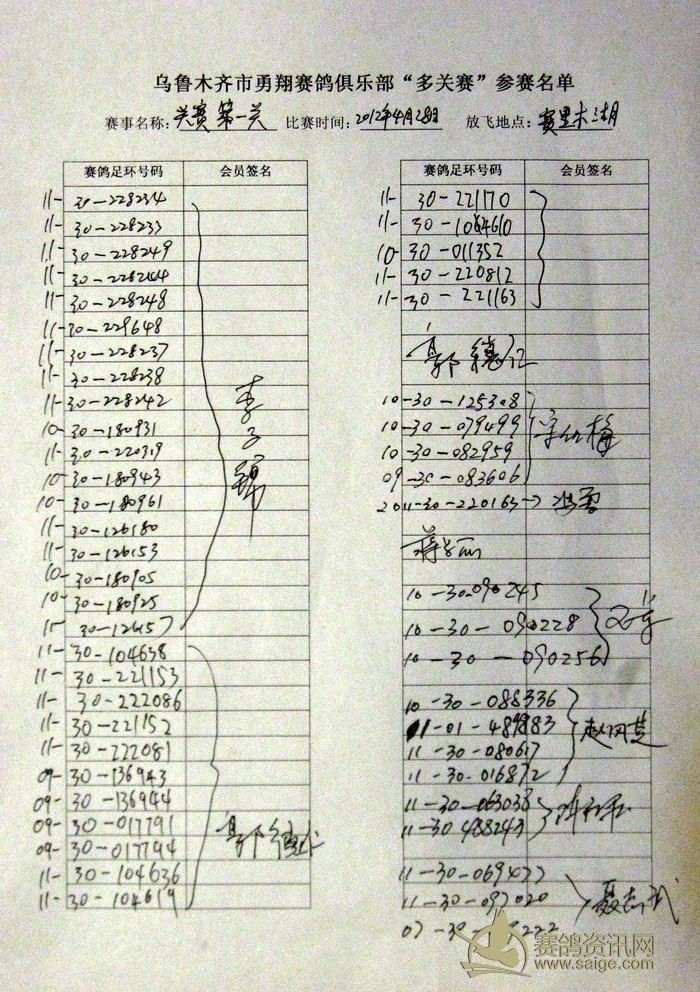 乌鲁木齐市勇翔赛鸽俱乐部“多关赛”参赛名单
赛事名称：关赛第一关 比赛时间：2012年4月28日 放飞地点：赛里木湖
赛鸽足环号码 会员签名
11-30-228234
11-30-228233
11-30-228249
11-30-228244
11-30-228248
11-30-229648
11-30-228237
11-30-228238
11-30-228242
10-30-180931
11-30-220319
10-30-180943
10-30-180961
11-30-126180
11-30-126153
10-30-180905
10-30-180925
11-30-126157
李子
11-30-104638
11-30-221153
11-30-222086
11-30-221152
11-30-222081
09-30-136943
09-30-136944
09-30-017791
09-30-017794
11-30-104636
11-30-104619
郭
赛鸽足环号码 会员签名
11-30-221170
11-30-1064610
10-30-011352
11-30-220812
11-30-221163
郭德江
10-30-125308
10-30-079499
10-30-082959
09-30-083606
梅
2011-30-220163→冯雷
蒋
10-30-090245
10-30-090228
10-30-090256
10-30-088336
11-01-489883
11-30-080617
11-30-016872
赵
11-30-063038
11-30 488243
11-30-069477
11-30-097020
聂志武
07-30-222
赛鸽资讯网
www.saige.com